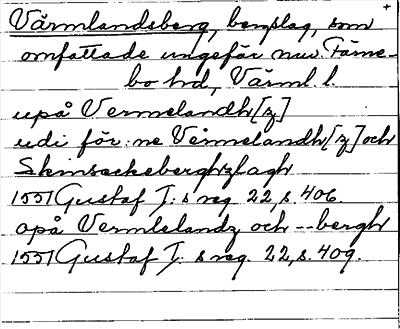 Värmlandsberg, bergslag, som +
omfattade ungefär nuv. Färne-
bo hd, Värml. l.
upå Vermelandh[z]
udi för:ne Vermelandh[z] och
Skinsackeberghzlagh
1551 Gustaf I:s reg. 22, s. 406.
opå Vermlelandz och --bergh
1551 Gustaf I:s reg. 22, s. 409.